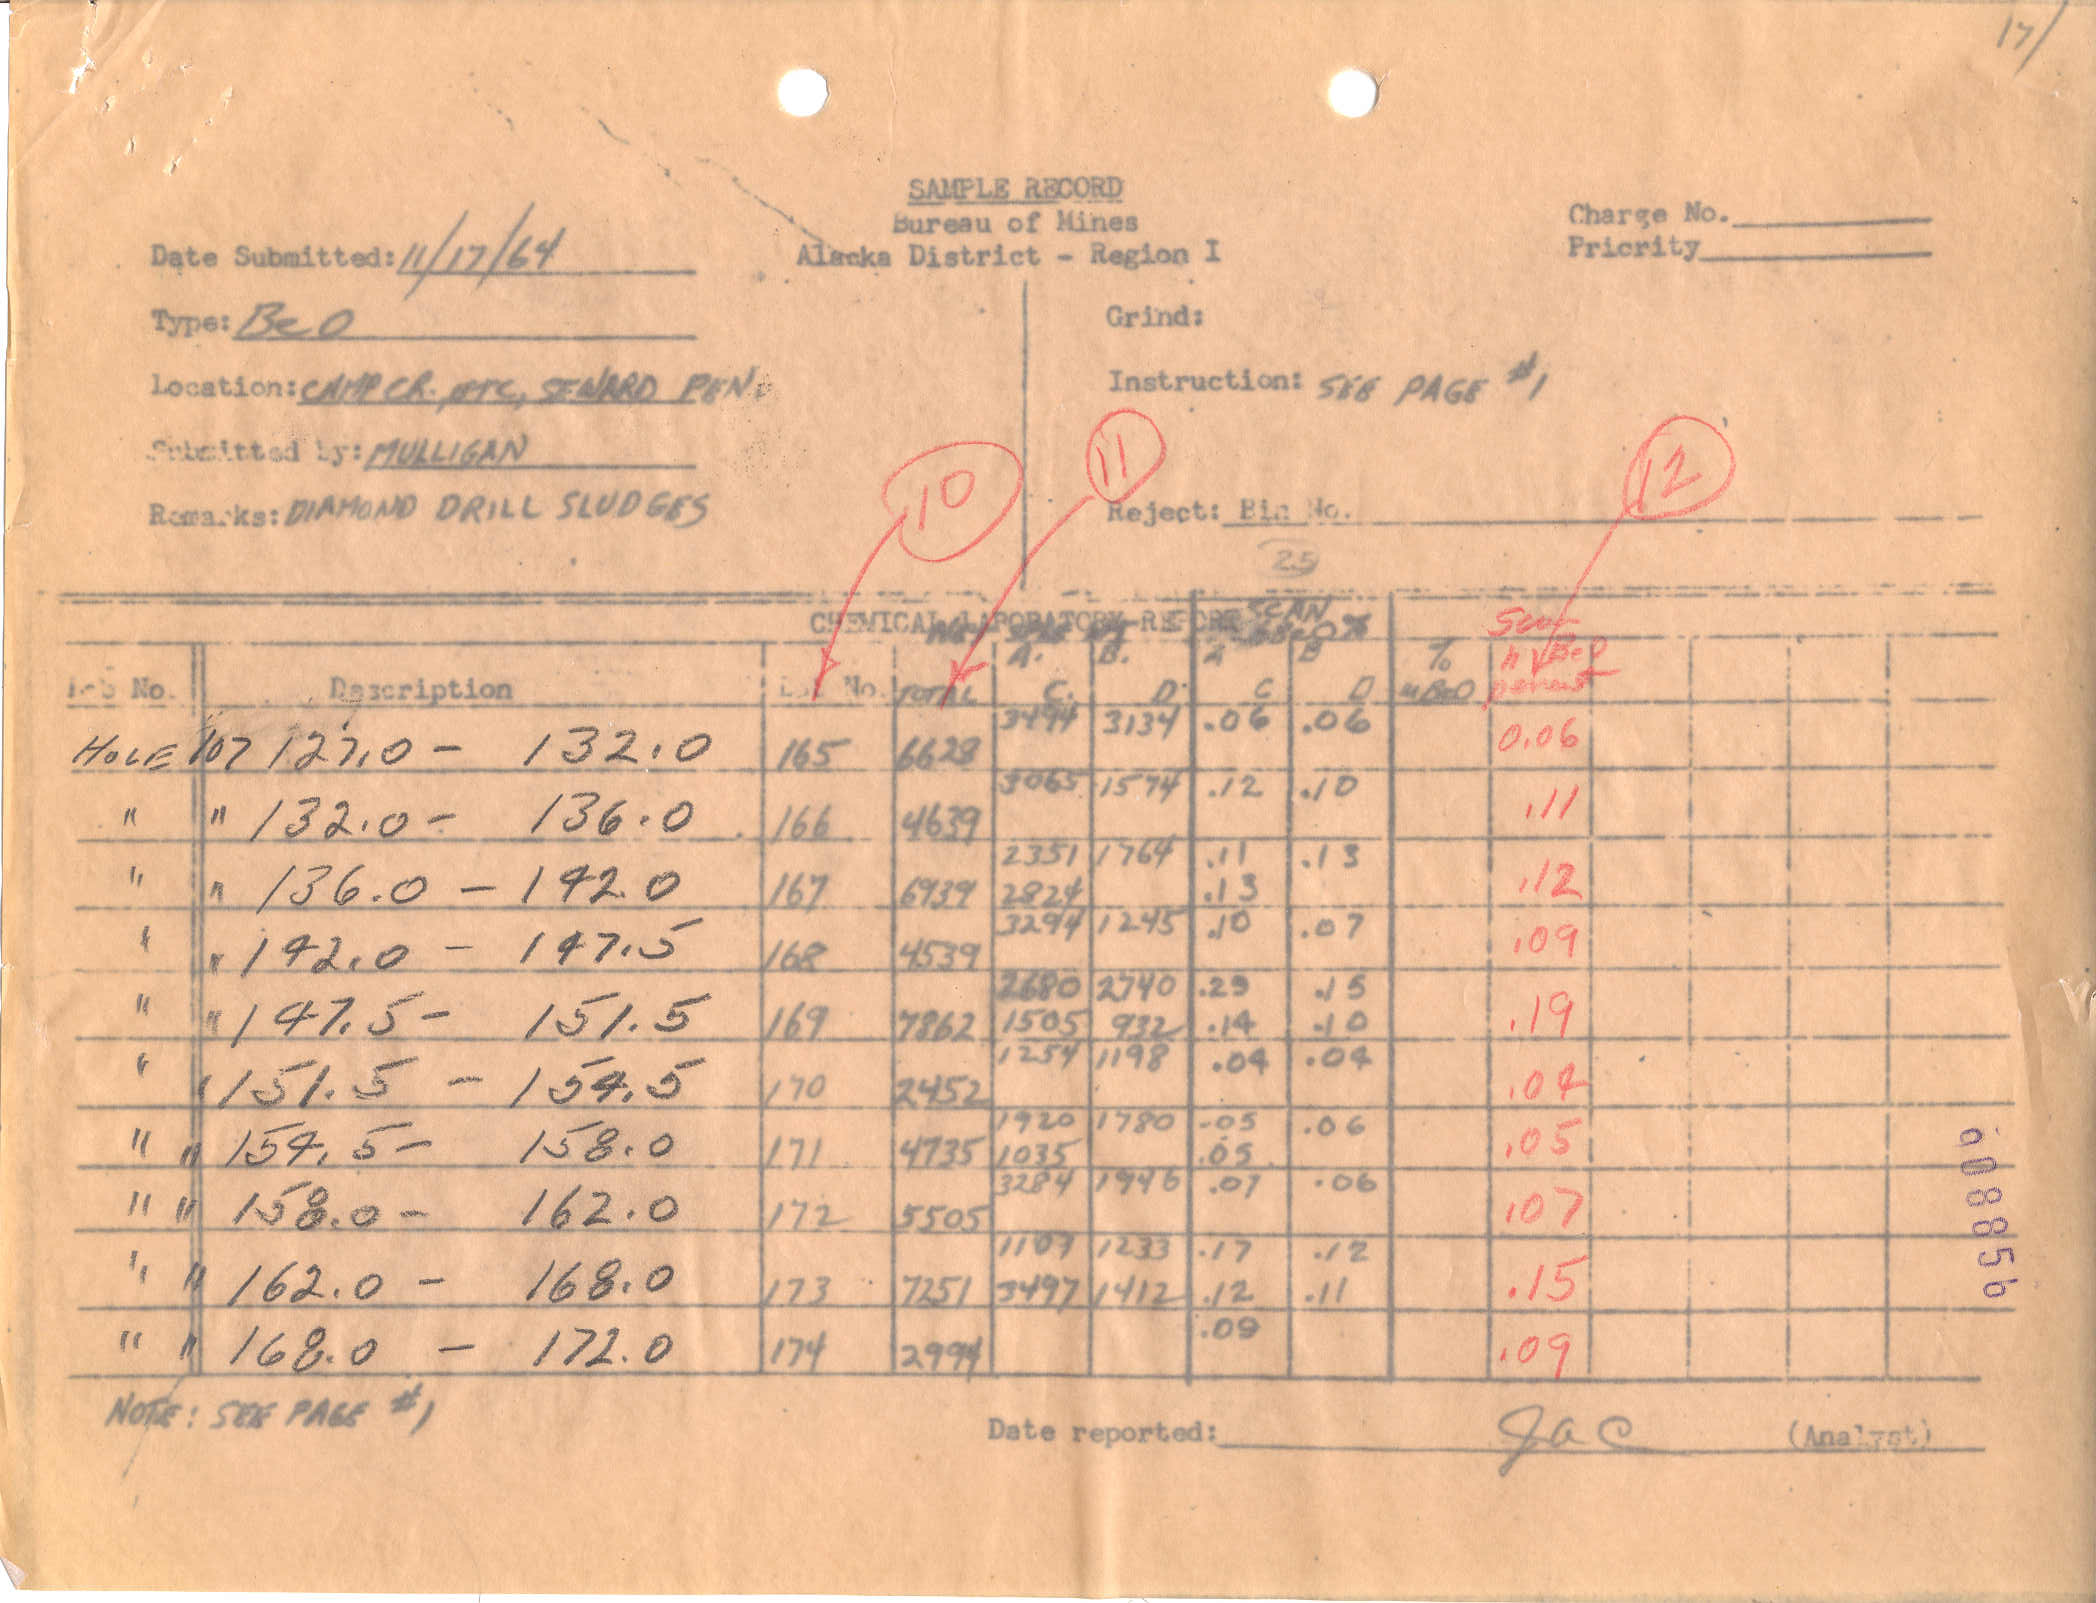 17/
SAMPLE RECORD
Bureau of Mines
Alaska District - Region I
Charge No.
Priority
Date Submitted: 11/17/64
Type: BeO
Grind:
Location: CAMP CR. ETC, SEWARD PEN.
Instruction: SEE PAGE #1
Submitted by: MULLIGAN
10 11 12
Remarks: DIAMOND DRILL SLUDGES
Reject: Bin No.
25
CHEMICAL LABORATORY REPORT SCAN BeO %
A. B. A B %
Lab No. Description Lab No. TOTAL C. D. C D BeO percent
HOLE 107 127.0 - 132.0 165 6628 3494 3134 .06 .06 0.06
" " 132.0 - 136.0 166 4639 3065 1574 .12 .10 .11
" " 136.0 - 142.0 167 6939 2351 1764 .11 .13 .12
2824 .13
" " 142.0 - 147.5 168 4539 3294 1245 .10 .07 .09
" " 147.5 - 151.5 169 7862 2680 2740 .29 .15 .19
1505 932 .14 .10
" " 151.5 - 154.5 170 2452 1254 1198 .04 .04 .04
" " 154.5 - 158.0 171 4735 1920 1780 .05 .06 .05
1035 .05
" " 158.0 - 162.0 172 5505 3284 1946 .07 .06 .07
" " 162.0 - 168.0 173 7251 1107 1233 .17 .12 .15
3497 1412 .12 .11
" " 168.0 - 172.0 174 2994 .09 .09
NOTE: SEE PAGE #1
Date reported: JAC (Analyst)
a08856